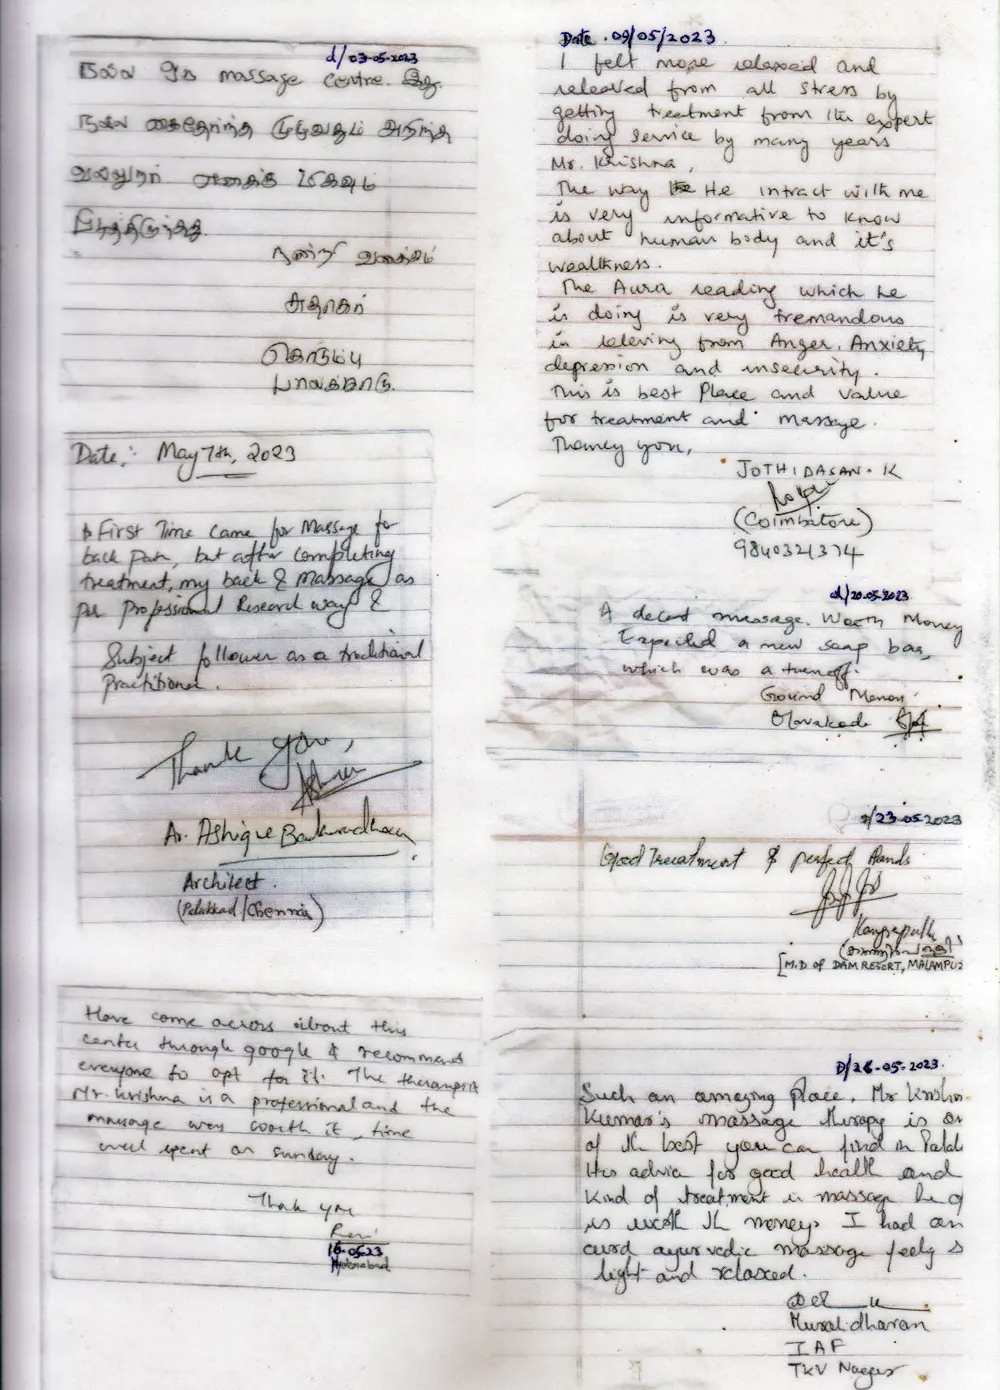 d/03-05-2023
நல்ல ஒரு massage centre. இது
நல்ல கைதேர்ந்த முழுவதும் அறிந்த
மிகவும்
நன்றி வணக்கம்
கொடும்பு
பாலக்காடு.
Date: May 7th, 2023
First Time came for Massage for
back pain, but after completing
treatment, my back & Massage as
per professional Research way &
Subject follower as a traditional
Practitioner.
Thank you,
Ar. Ashique
Architect.
(Palakkad/Chennai)
Have come across about this
center through google & recommend
everyone to opt for it. The therapist
Mr. Krishna is a professional and the
massage was worth it, time
well spent on sunday.
Thank you
Ravi
16-05-23
Hyderabad
Date . 09/05/2023
I felt more relaxed and
releaved from all stress by
getting treatment from the expert
doing service by many years
Mr. Krishna,
The way He intract with me
is very informative to know
about human body and it's
wealkness.
The Aura reading which he
is doing is very tremandous
in releving from Anger, Anxiety,
depression and insecurity.
This is best Place and value
for treatment and massage.
Thankq you,
JOTHIDASAN. K
(Coimbatore)
9840321374
d/20.05.2023
A decent massage. Worth Money
Expected a new soap bar,
which was a turnoff.
Govind Menon
Olavakode
D/23-05-2023
Good Treatment & perfect Hands
Kanjirapuzha
[M.D of DAM RESORT, MALAMPUZ
D/26-05-2023
Such an amazing place, Mr Krishn
Kumar's massage therapy is on
of the best you can find in Palak
His advice for good health and
kind of treatment in massage he of
is worth the money. I had an
ayurvedic massage feelg s
light and relaxed.
Muralidharan
IAF
TKV Nagar